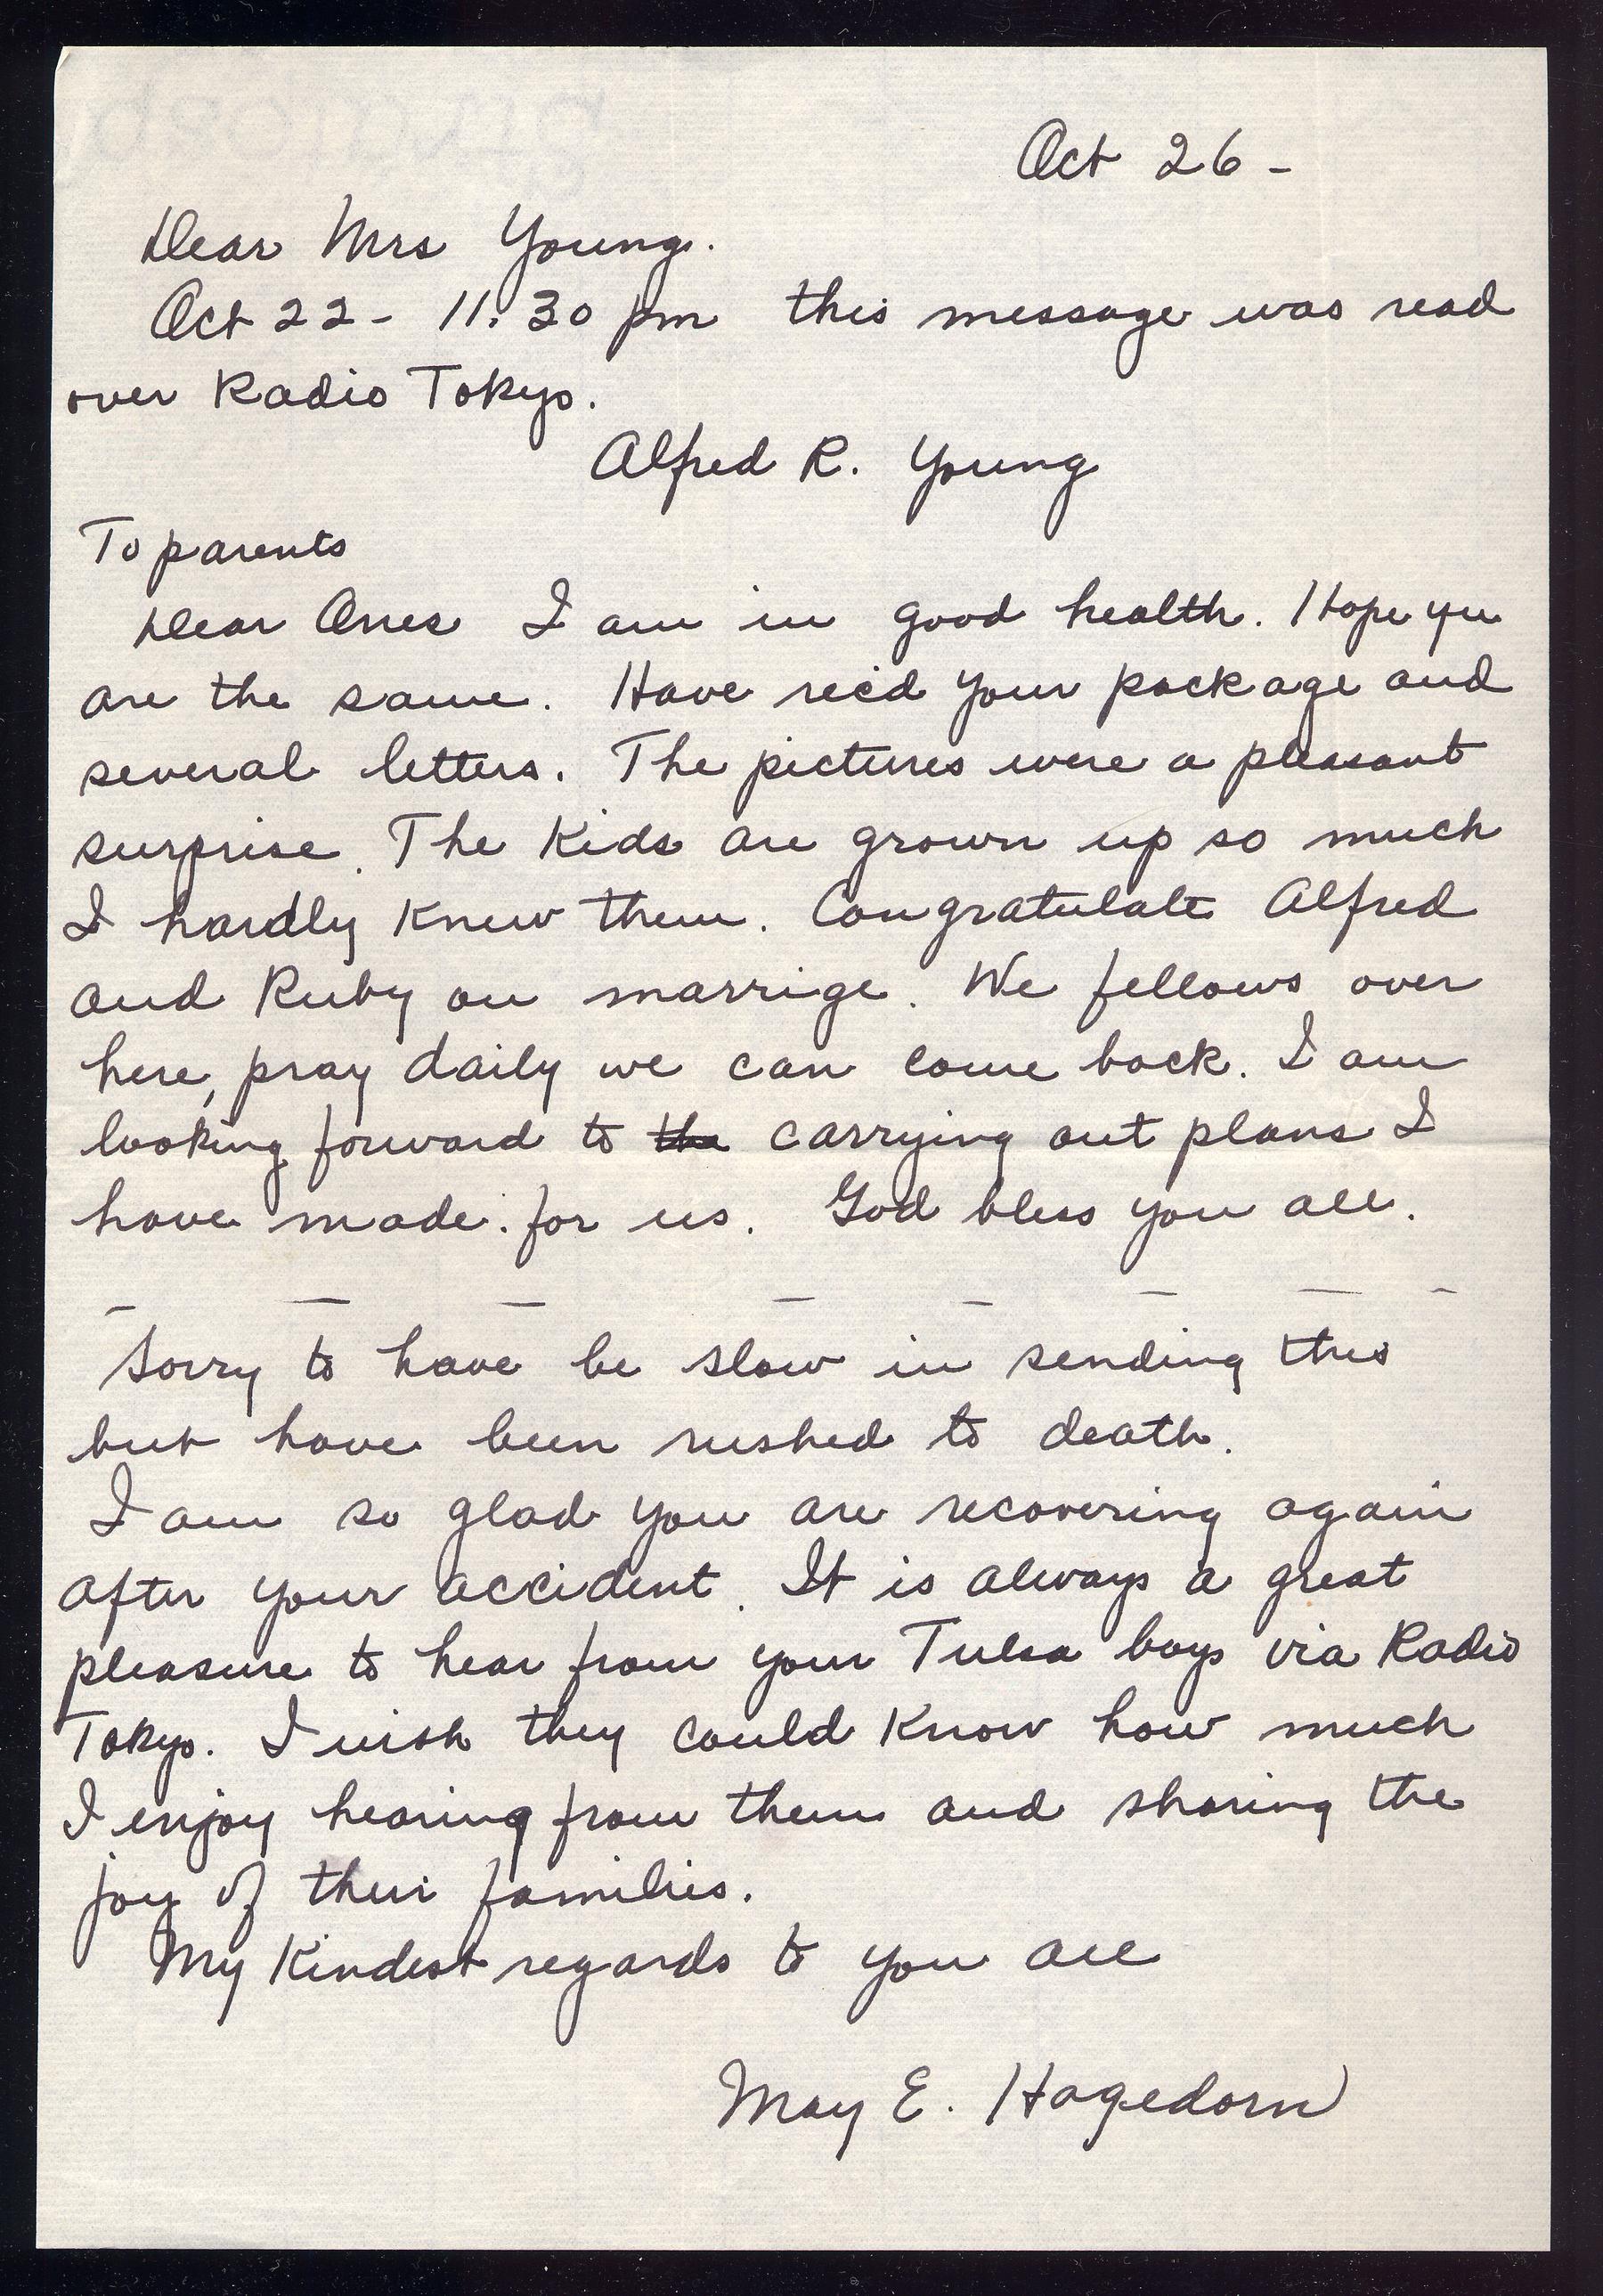 Oct 26 -
Dear Mrs Young.
Oct 22 - 11:30 pm this message was read
over Radio Tokyo.
Alfred R. Young
To parents
Dear Ones I am in good health. Hope you
are the same. Have rec'd your package and
several letters. The pictures were a pleasant
surprise. The kids are grown up so much
I hardly knew them. Congratulate Alfred
and Ruby on marrige. We fellows over
here, pray daily we can come back. I am
looking forward to the carrying out plans I
have made. for us. God bless you all.
Sorry to have be slow in sending this
but have been rushed to death.
I am so glad you are recovering again
after your accident. It is always a great
pleasure to hear from your Tulsa boys via Radio
Tokyo. I wish they could know how much
I enjoy hearing from them and sharing the
joy of their families.
My kindest regards to you all
May E. Hagedorn